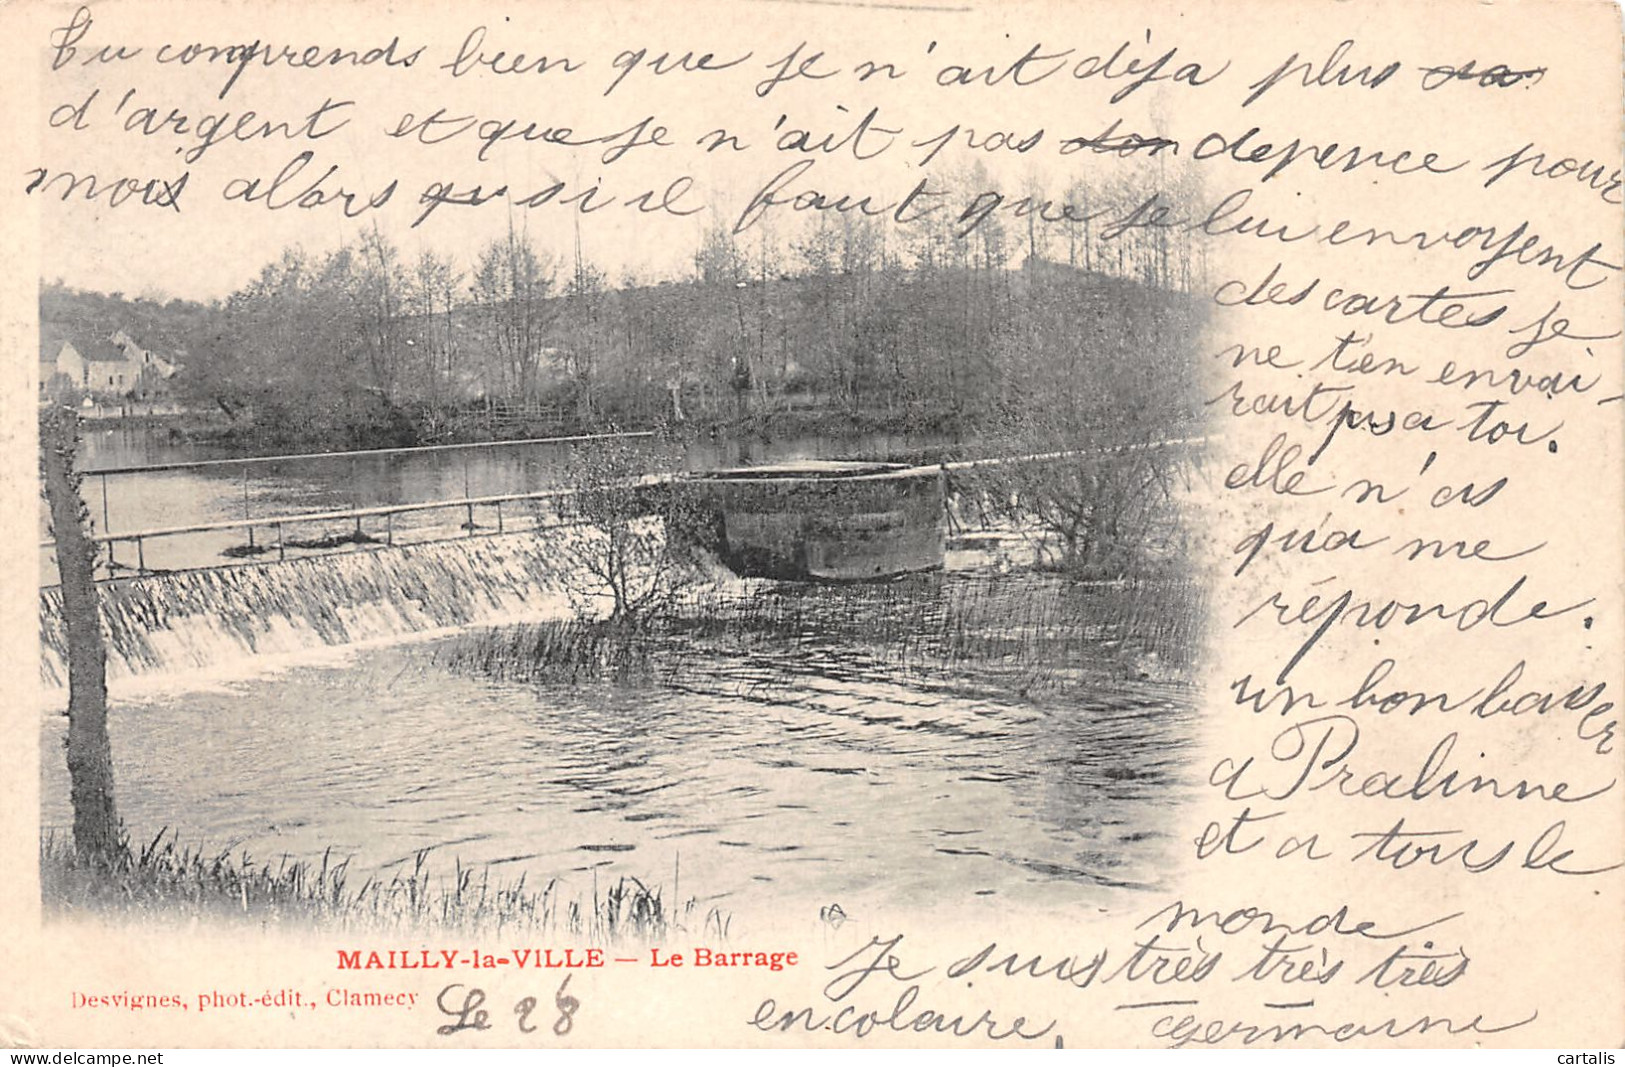 Tu comprends bien que je n'ait déja plus
d'argent et que je n'ait pas depence pour
mois alórs si il faut que je lui envoyent
des cartes je
ne t'en envai-
rait pas a toi.
elle n'as
qu'a me
réponde.
un bon baiser
a Pralinne
et a tous le
monde
Je suis très très très
encolaire, Germaine
MAILLY-la-VILLE — Le Barrage
Desvignes, phot.-édit., Clamecy
Le 28
delcampe.net
cartalis